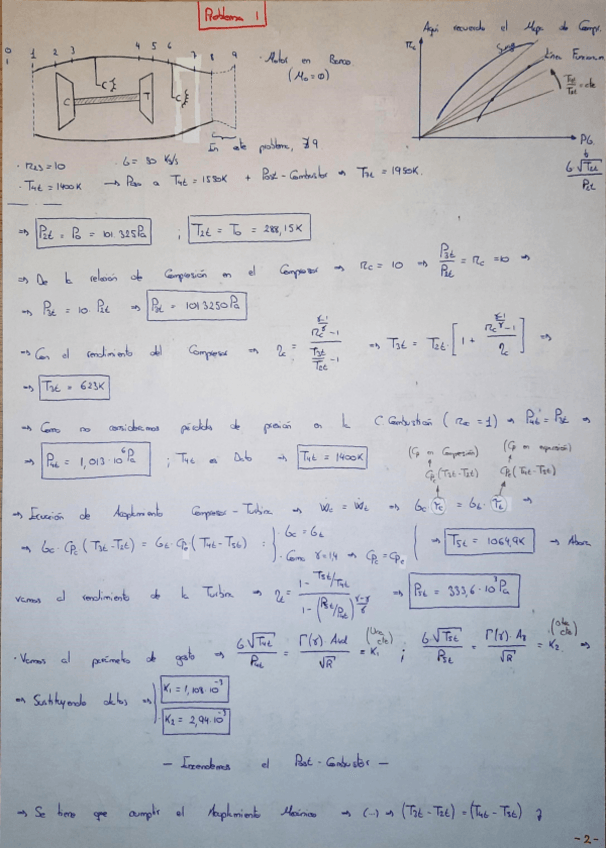 Problema 1
0 1 2 3 4 5 6 7 8 9
C T C C
· Motor en Banco
(M₀ = Ø)
En este problema, ∄ 9
Aquí recuerdo el Mapa de Compr.
π_c
Surge
Línea Funcionam.
T4t/T2t = cte
PG.
G√T2t / P2t
· π23 = 10 · G = 30 Kg/s
· T4t = 1400K → Paso a T4t = 1550K + Post-Combustor ⇒ T7t = 1950K.
⇒ P2t = P0 = 101.325Pa ; T2t = T0 = 288,15K
⇒ De la relación de Compresión en el Compresor ⇒ π_c = 10 ⇒ P3t/P2t = π_c = 10 ⇒
⇒ P3t = 10 · P2t ⇒ P3t = 1013250Pa
⇒ Con el rendimiento del Compresor ⇒ η_c = (π_c^((γ-1)/γ) - 1) / (T3t/T2t - 1) ⇒ T3t = T2t · [1 + (π_c^((γ-1)/γ) - 1)/η_c] ⇒
⇒ T3t = 623K
⇒ Como no consideramos pérdidas de presión en la C. Combustión (π_cc = 1) ⇒ P4t = P3t ⇒
⇒ P4t = 1,013 · 10⁶Pa ; T4t es Dato ⇒ T4t = 1400K
(Cp en Compresión) (Cp en expansión)
Cpc (T3t - T2t) Cpe (T4t - T5t)
⇒ Ecuación de Acoplamiento Compresor - Turbina ⇒ Ẇc = Ẇt ⇒ Gc · τc = Gt · τt ⇒
⇒ Gc · Cpc (T3t - T2t) = Gt · Cpe (T4t - T5t) = { Gc = Gt · Como γ = 1,4 ⇒ Cpc = Cpe } ⇒ T5t = 1064,9K → Ahora
vamos al rendimiento de la Turbina ⇒ ηt = (1 - T5t/T4t) / (1 - (P5t/P4t)^((γ-1)/γ)) ⇒ P5t = 333,6 · 10³Pa
· Vamos al parámetro de gasto ⇒ G√T4t / P4t = Γ(γ) · A / √R = K₁ (Una cte) ; G√T5t / P5t = Γ(γ) · A8 / √R = K₂ (Otra cte) ⇒
⇒ Sustituyendo datos ⇒ K₁ = 1,108 · 10⁻³
K₂ = 2,94 · 10⁻³
— Encendemos el Post - Combustor —
⇒ Se tiene que cumplir el Acoplamiento Mecánico ⇒ (...) ⇒ (T3t - T2t) = (T4t - T5t) }
- 2 -